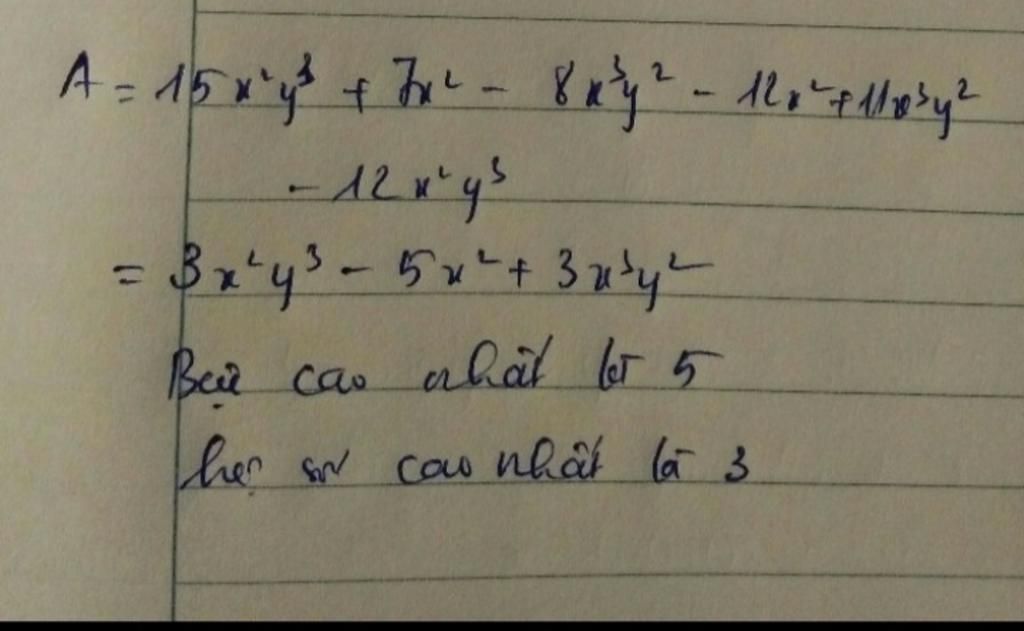 A = 15x²y³ + 7x² - 8x³y² - 12x² + 11x³y²
- 12x²y³
= 3x²y³ - 5x² + 3x³y²
Bậc cao nhất là 5
hệ số cao nhất là 3